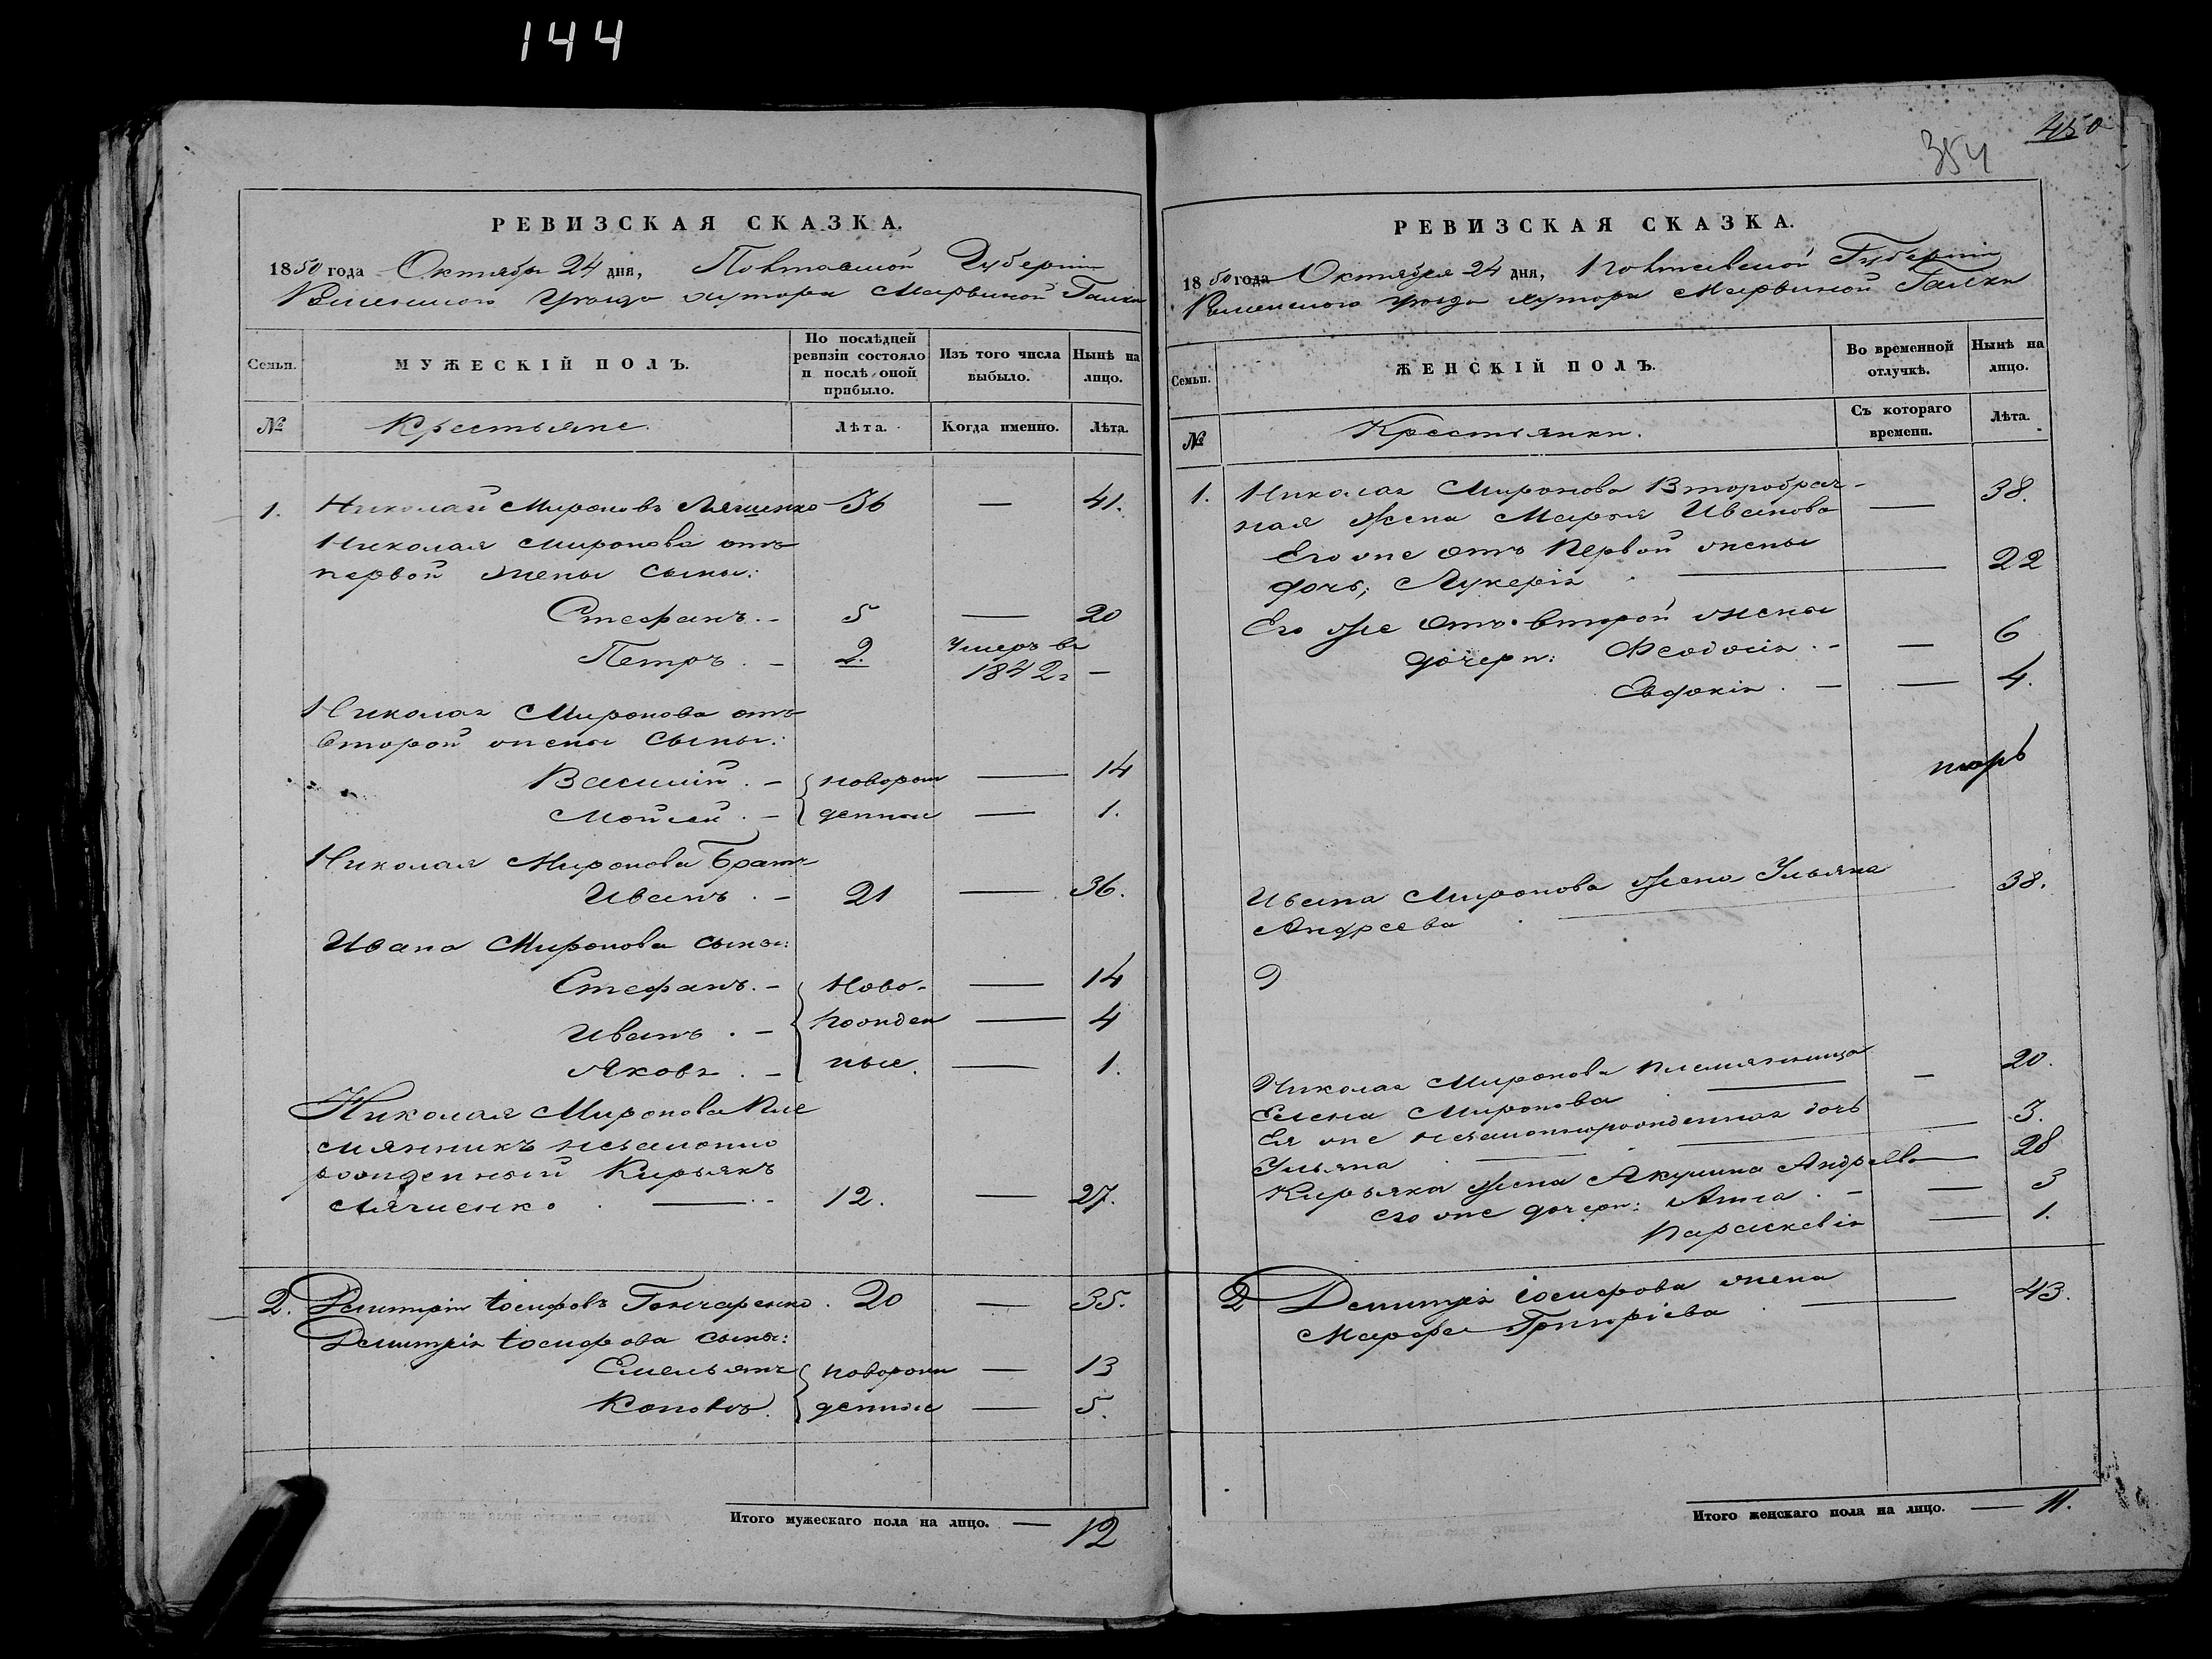 144
РЕВИЗСКАЯ СКАЗКА.
1850 года Октября 24 дня, Полтавской Губерніи
Роменского уѣзда хутора Марвиной Галки
Семьи.
МУЖЕСКІЙ ПОЛЪ.
По послѣдней ревизіи состояло и послѣ оной прибыло.
Изъ того числа выбыло.
Нынѣ на лицо.
№ Крестьяне. Лѣта. Когда именно. Лѣта.
1. Николай Мироновъ Ляшенко 36 — 41.
Николая Миронова отъ
первой жены сыны:
Стефанъ. — 5 — 20
Петръ. — 2. Умеръ въ 1842 г —
Николая Миронова отъ
второй жены сыны:
Василій. — новорож — 14
Мойсей. — денные — 1.
Николая Миронова братъ
Иванъ. — 21 — 36.
Ивана Миронова сыны:
Стефанъ. — Ново- — 14
Иванъ. — рожден — 4
Яковъ. — ные. — 1.
Николая Миронова пле
мянникъ незаконно
рожденный Кирьякъ
Ляшенко. — 12. — 27.
2. Дмитрій Іосифовъ Гончаренко. 20 — 35.
Дмитрія Іосифова сыны:
Емельянъ новорож — 13
Кононъ. денные — 5.
Итого мужескаго пола на лицо. — 12
450
354
РЕВИЗСКАЯ СКАЗКА.
1850 года Октября 24 дня, Полтавской Губерніи
Роменского уѣзда хутора Марвиной Галки
Семьи.
ЖЕНСКІЙ ПОЛЪ.
Во временной отлучкѣ.
Нынѣ на лицо.
№ Крестьянки. Съ котораго времени. Лѣта.
1. Николая Миронова Второбрач-
ная жена Марья Иванова — 38.
Его же отъ первой жены
дочь, Лукерія — 22
Его же отъ второй жены
дочери: Феодосія. — — 6
Евдокія. — — 4.
Ивана Миронова жена Ульяна
Андреева — 38.
Николая Миронова племянница
Елена Миронова — — 20.
Ея же незаконнорожденная дочь
Ульяна — — 3.
Кирьяка жена Акулина Андреева — 28
его же дочери: Анна. — — 3
Параскевія — 1.
2 Дмитрія Іосифова жена
Марфа Григоріева — 43.
Итого женскаго пола на лицо. — 11.